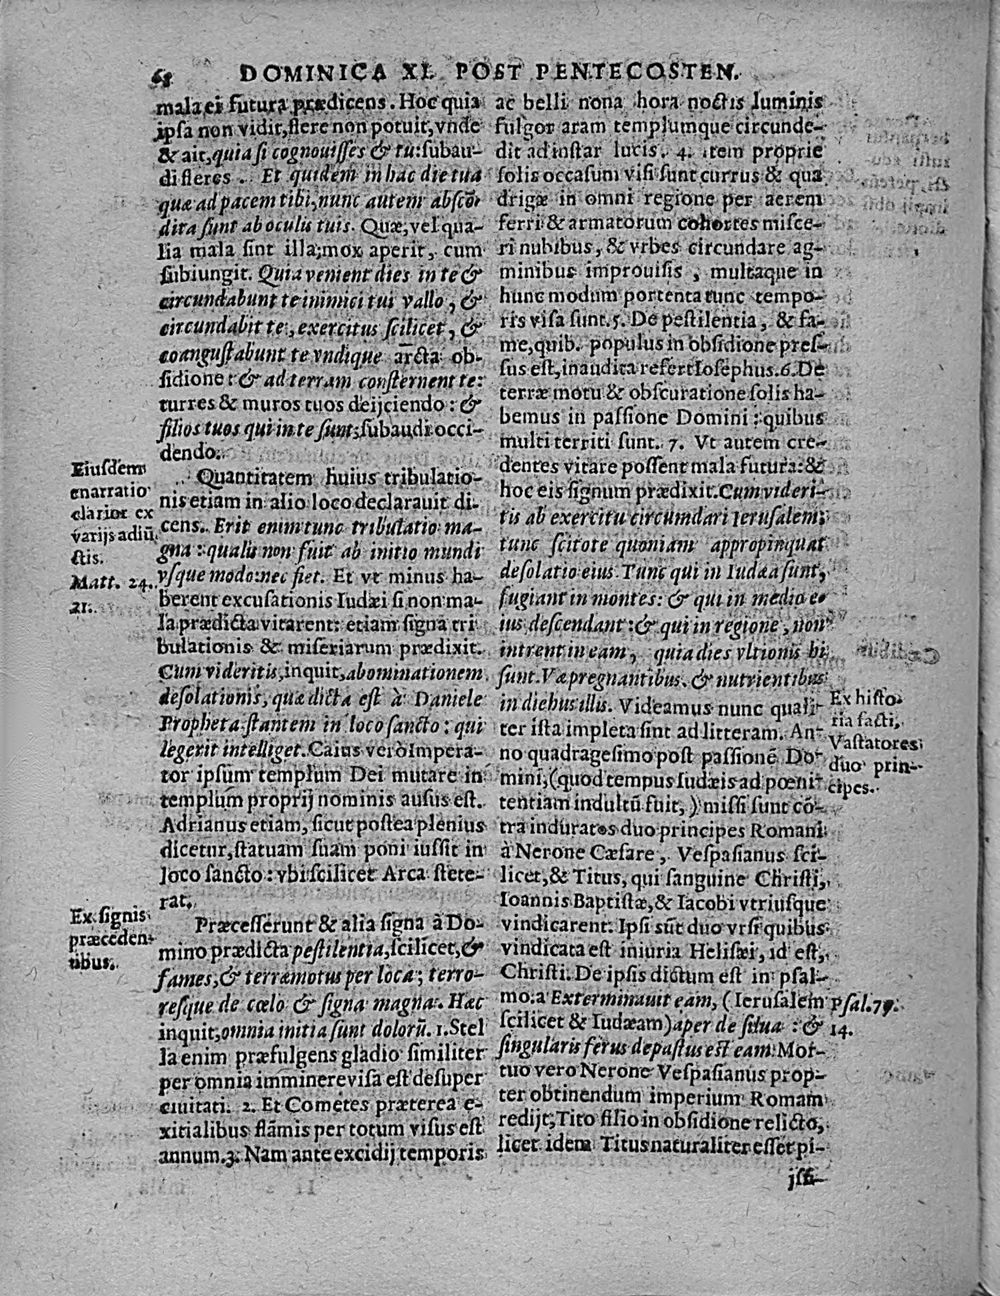 DOMINICA XI. POST PENTECOSTEN.
mala ei futura prædicens. Hoc quia
ipsa non vidit, flere non potuit, vnde
& ait, quia si cognouisses & tu: subau-
di fleres. Et quidem in hac die tua
quæ ad pacem tibi, nunc autem abscō
dita sunt ab oculis tuis. Quæ, vel qua-
lia mala sint illa; mox aperit, cum
subiungit. Quia venient dies in te &
circundabunt te inimici tui vallo, &
circundabit te, exercitus scilicet, &
coangustabunt te vndique arcta ob-
sidione: & ad terram consternent te:
turres & muros tuos deijciendo: &
filios tuos qui in te sunt; subaudi occi-
dendo.
Eiusdem
enarratio
clarior ex
varijs adiū
ctis.
Matt. 24.
21.
Quantitatem huius tribulatio-
nis etiam in alio loco declarauit di-
cens. Erit enim tunc tribulatio ma-
gna: qualis non fuit ab initio mundi
vsque modo: nec fiet. Et vt minus ha-
berent excusationis Iudæi si non ma-
la prædicta vitarent: etiam signa tri
bulationis & miseriarum prædixit.
Cum videritis, inquit, abominationem
desolationis, quæ dicta est à Daniele
Propheta stantem in loco sancto: qui
legerit intelliget. Caius verò Impera-
tor ipsum templum Dei mutare in
templum proprij nominis ausus est.
Adrianus etiam, sicut postea plenius
dicetur, statuam suam poni iussit in
loco sancto: vbi scilicet Arca stete-
rat.
Ex signis
præceden-
tibus.
Præcesserunt & alia signa à Do-
mino prædicta pestilentia, scilicet, &
fames, & terræmotus per loca; terro-
resque de cœlo & signa magna. Hæc
inquit, omnia initia sunt dolorū. 1. Stel
la enim præfulgens gladio similiter
per omnia imminere visa est desuper
ciuitati. 2. Et Cometes præterea e-
xitialibus flāmis per totum visus est
annum. 3. Nam ante excidij temporis
ac belli nona hora noctis luminis
fulgor aram templumque circunde-
dit ad instar lucis. 4. item proprie
solis occasum visi sunt currus & qua
drigæ in omni regione per aerem
ferri & armatorum cohortes misce-
ri nubibus, & vrbes circundare ag-
minibus improuisis, multaque in
hunc modum portenta tunc tempo-
ris visa sunt. 5. De pestilentia, & fa-
me, quib. populus in obsidione pres-
sus est, inaudita refert Iosephus. 6. De
terræ motu & obscuratione solis ha-
bemus in passione Domini: quibus
multi territi sunt. 7. Vt autem cre-
dentes vitare possent mala futura: &
hoc eis signum prædixit. Cum videri-
tis ab exercitu circumdari Ierusalem;
tunc scitote quoniam appropinquat
desolatio eius. Tunc qui in Iudæa sunt,
fugiant in montes: & qui in medio e-
ius descendant: & qui in regione, non
intrent in eam, quia dies vltionis hi
sunt. Væ pregnantibus, & nutrientibus
in diebus illis. Videamus nunc quali-
ter ista impleta sint ad litteram. An-
no quadragesimo post passionē Do-
mini, (quod tempus Iudæis ad pœni-
tentiam indultū fuit,) missi sunt cō-
tra induratos duo principes Romani
à Nerone Cæsare, Vespasianus sci-
licet, & Titus, qui sanguine Christi,
Ioannis Baptistæ, & Iacobi vtriusque
vindicarent: Ipsi sūt duo vrsi quibus
vindicata est iniuria Helisæi, id est,
Christi. De ipsis dictum est in psal-
mo. a Exterminauit eam, (Ierusalem
scilicet & Iudæam) aper de silua: &
singularis ferus depastus est eam. Mor-
tuo vero Nerone Vespasianus prop-
ter obtinendum imperium Romam
redijt, Tito filio in obsidione relicto,
licet idem Titus naturaliter esset pi-
Ex histo-
ria facti,
Vastatores
duo prin-
cipes.
Psal. 79.
14.